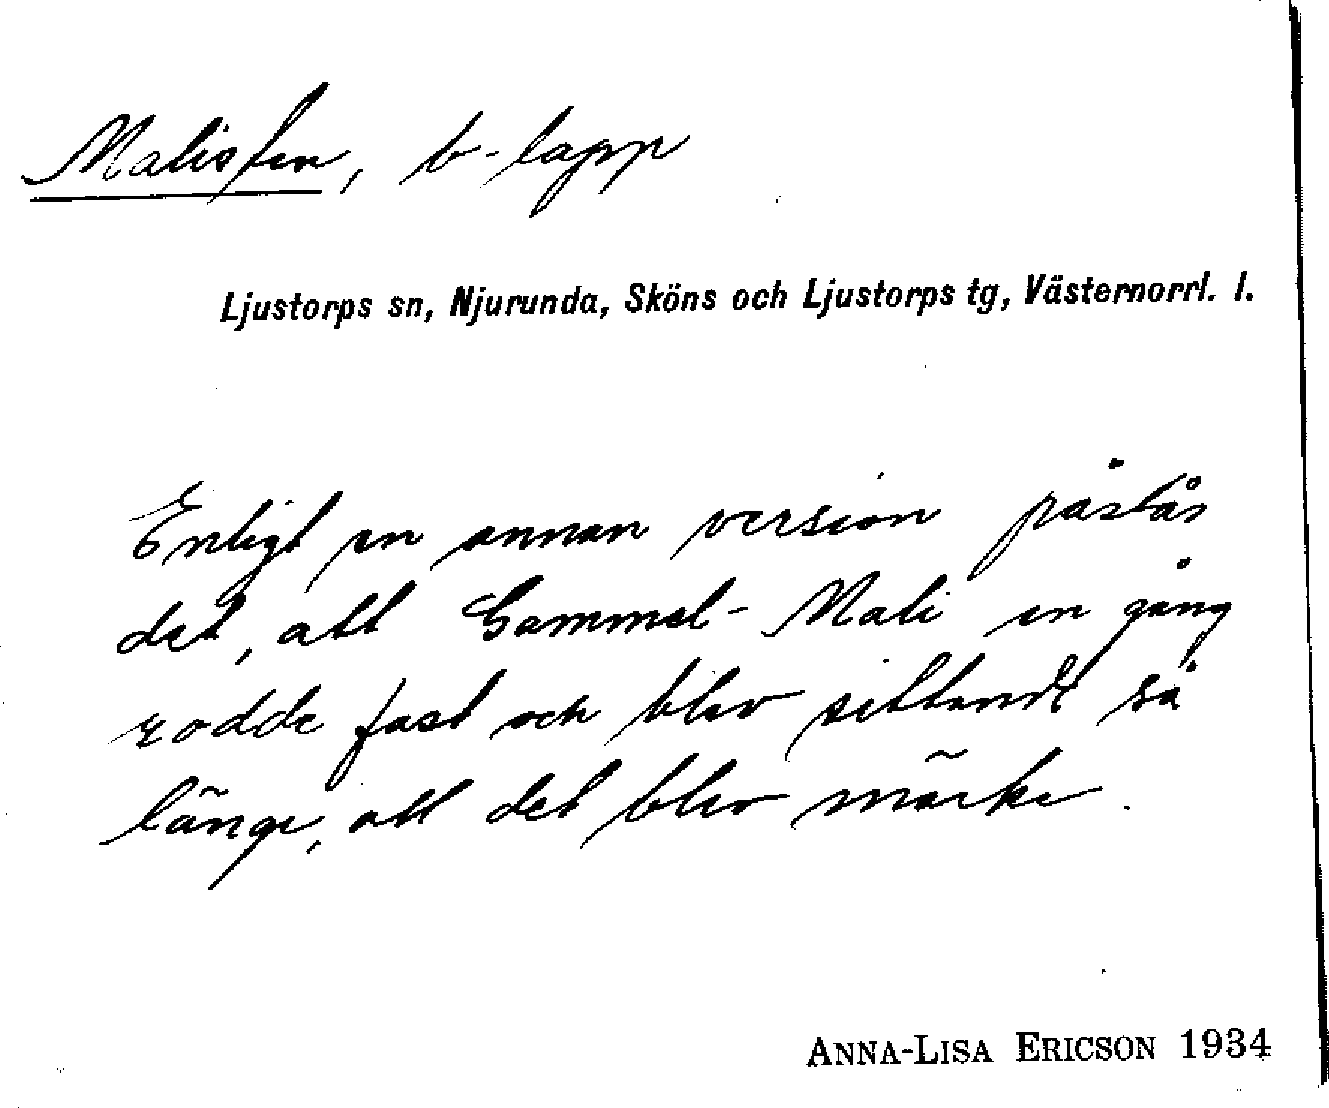 Malisten, b-lapp
Ljustorps sn, Njurunda, Sköns och Ljustorps tg, Västernorrl. l.
Enligt en annan version påstås
det, att Gammel-Mali en gång
rodde fast och blev sittande så
länge, att det blev märke.
ANNA-LISA ERICSON 1934